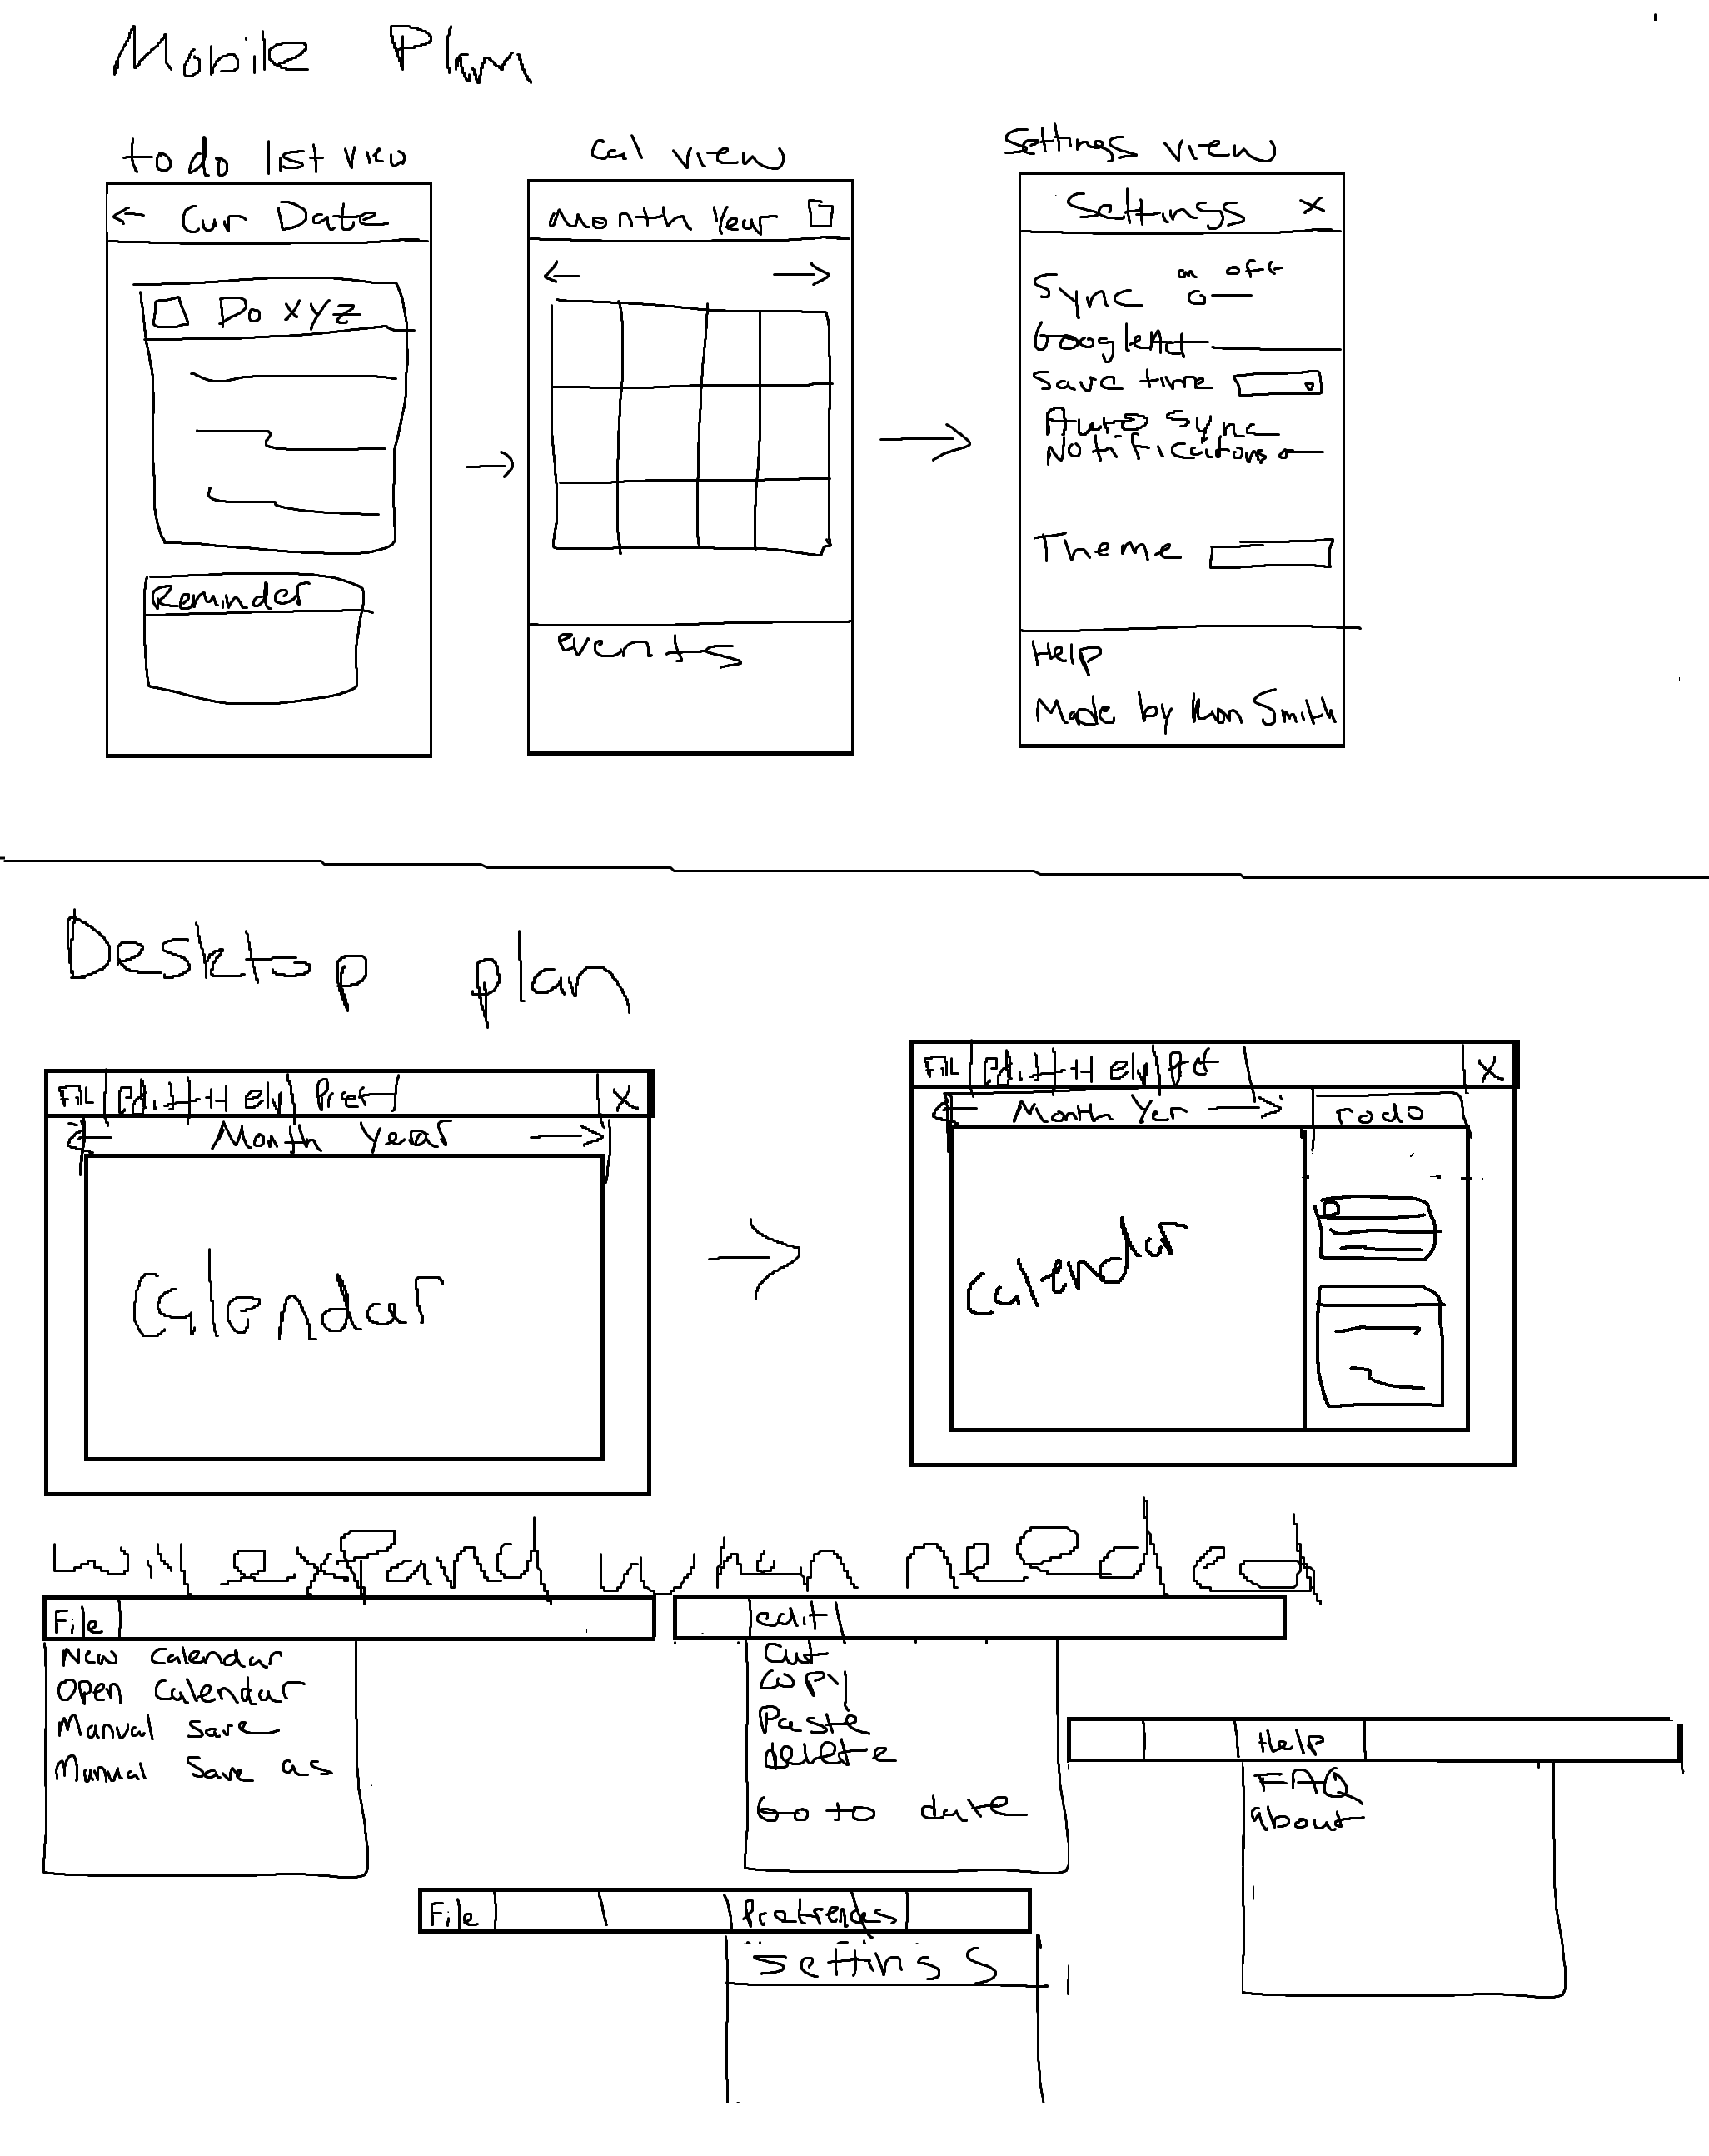 Mobile Plan
to do list view
cal view
Settings view
← Cur Date
Do XYZ
Reminder
Month Year
events
Settings X
on off
Sync
Google Act
Save time
Auto Sync
Notifications
Theme
Help
Made by Smith
Desktop plan
File edit Help Pref X
← Month Year →
Calendar
edit Help X
← Month Yer → Todo
Calendar
will expand when needed
File
New Calendar
Open Calendar
Manual Save
Manual Save as
edit
Cut
Copy
Paste
delete
Go to date
Help
FAQ
about
File
Settings